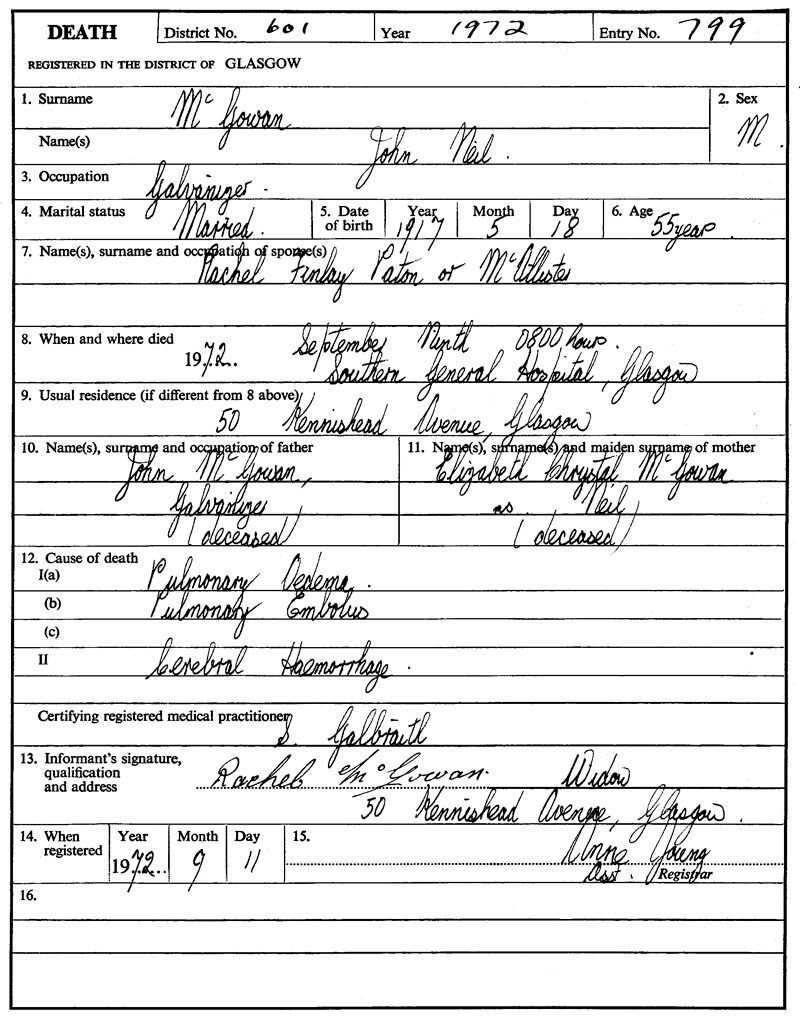 DEATH District No. 601 Year 1972 Entry No. 799
REGISTERED IN THE DISTRICT OF GLASGOW
1. Surname McGowan 2. Sex
Name(s) John Neil. M.
3. Occupation Galvanizer.
4. Marital status Married. 5. Date of birth Year 1917 Month 5 Day 18 6. Age 55 years.
7. Name(s), surname and occupation of spouse(s)
Rachel Finlay Paton or McAllister
8. When and where died 1972. September Ninth 0800 hours.
Southern General Hospital, Glasgow
9. Usual residence (if different from 8 above)
50 Kennishead Avenue, Glasgow
10. Name(s), surname and occupation of father
John McGowan,
Galvanizer
(deceased)
11. Name(s), surname(s) and maiden surname of mother
Elizabeth Chrystal McGowan
ms. Neil
(deceased)
12. Cause of death
I(a) Pulmonary Oedema.
(b) Pulmonary Embolus
(c)
II Cerebral Haemorrhage.
Certifying registered medical practitioner S. Galbraith
13. Informant's signature, qualification and address Rachel McGowan. Widow
50 Kennishead Avenue, Glasgow.
14. When registered Year 1972 Month 9 Day 11 15. Anne Young
Asst. Registrar
16.